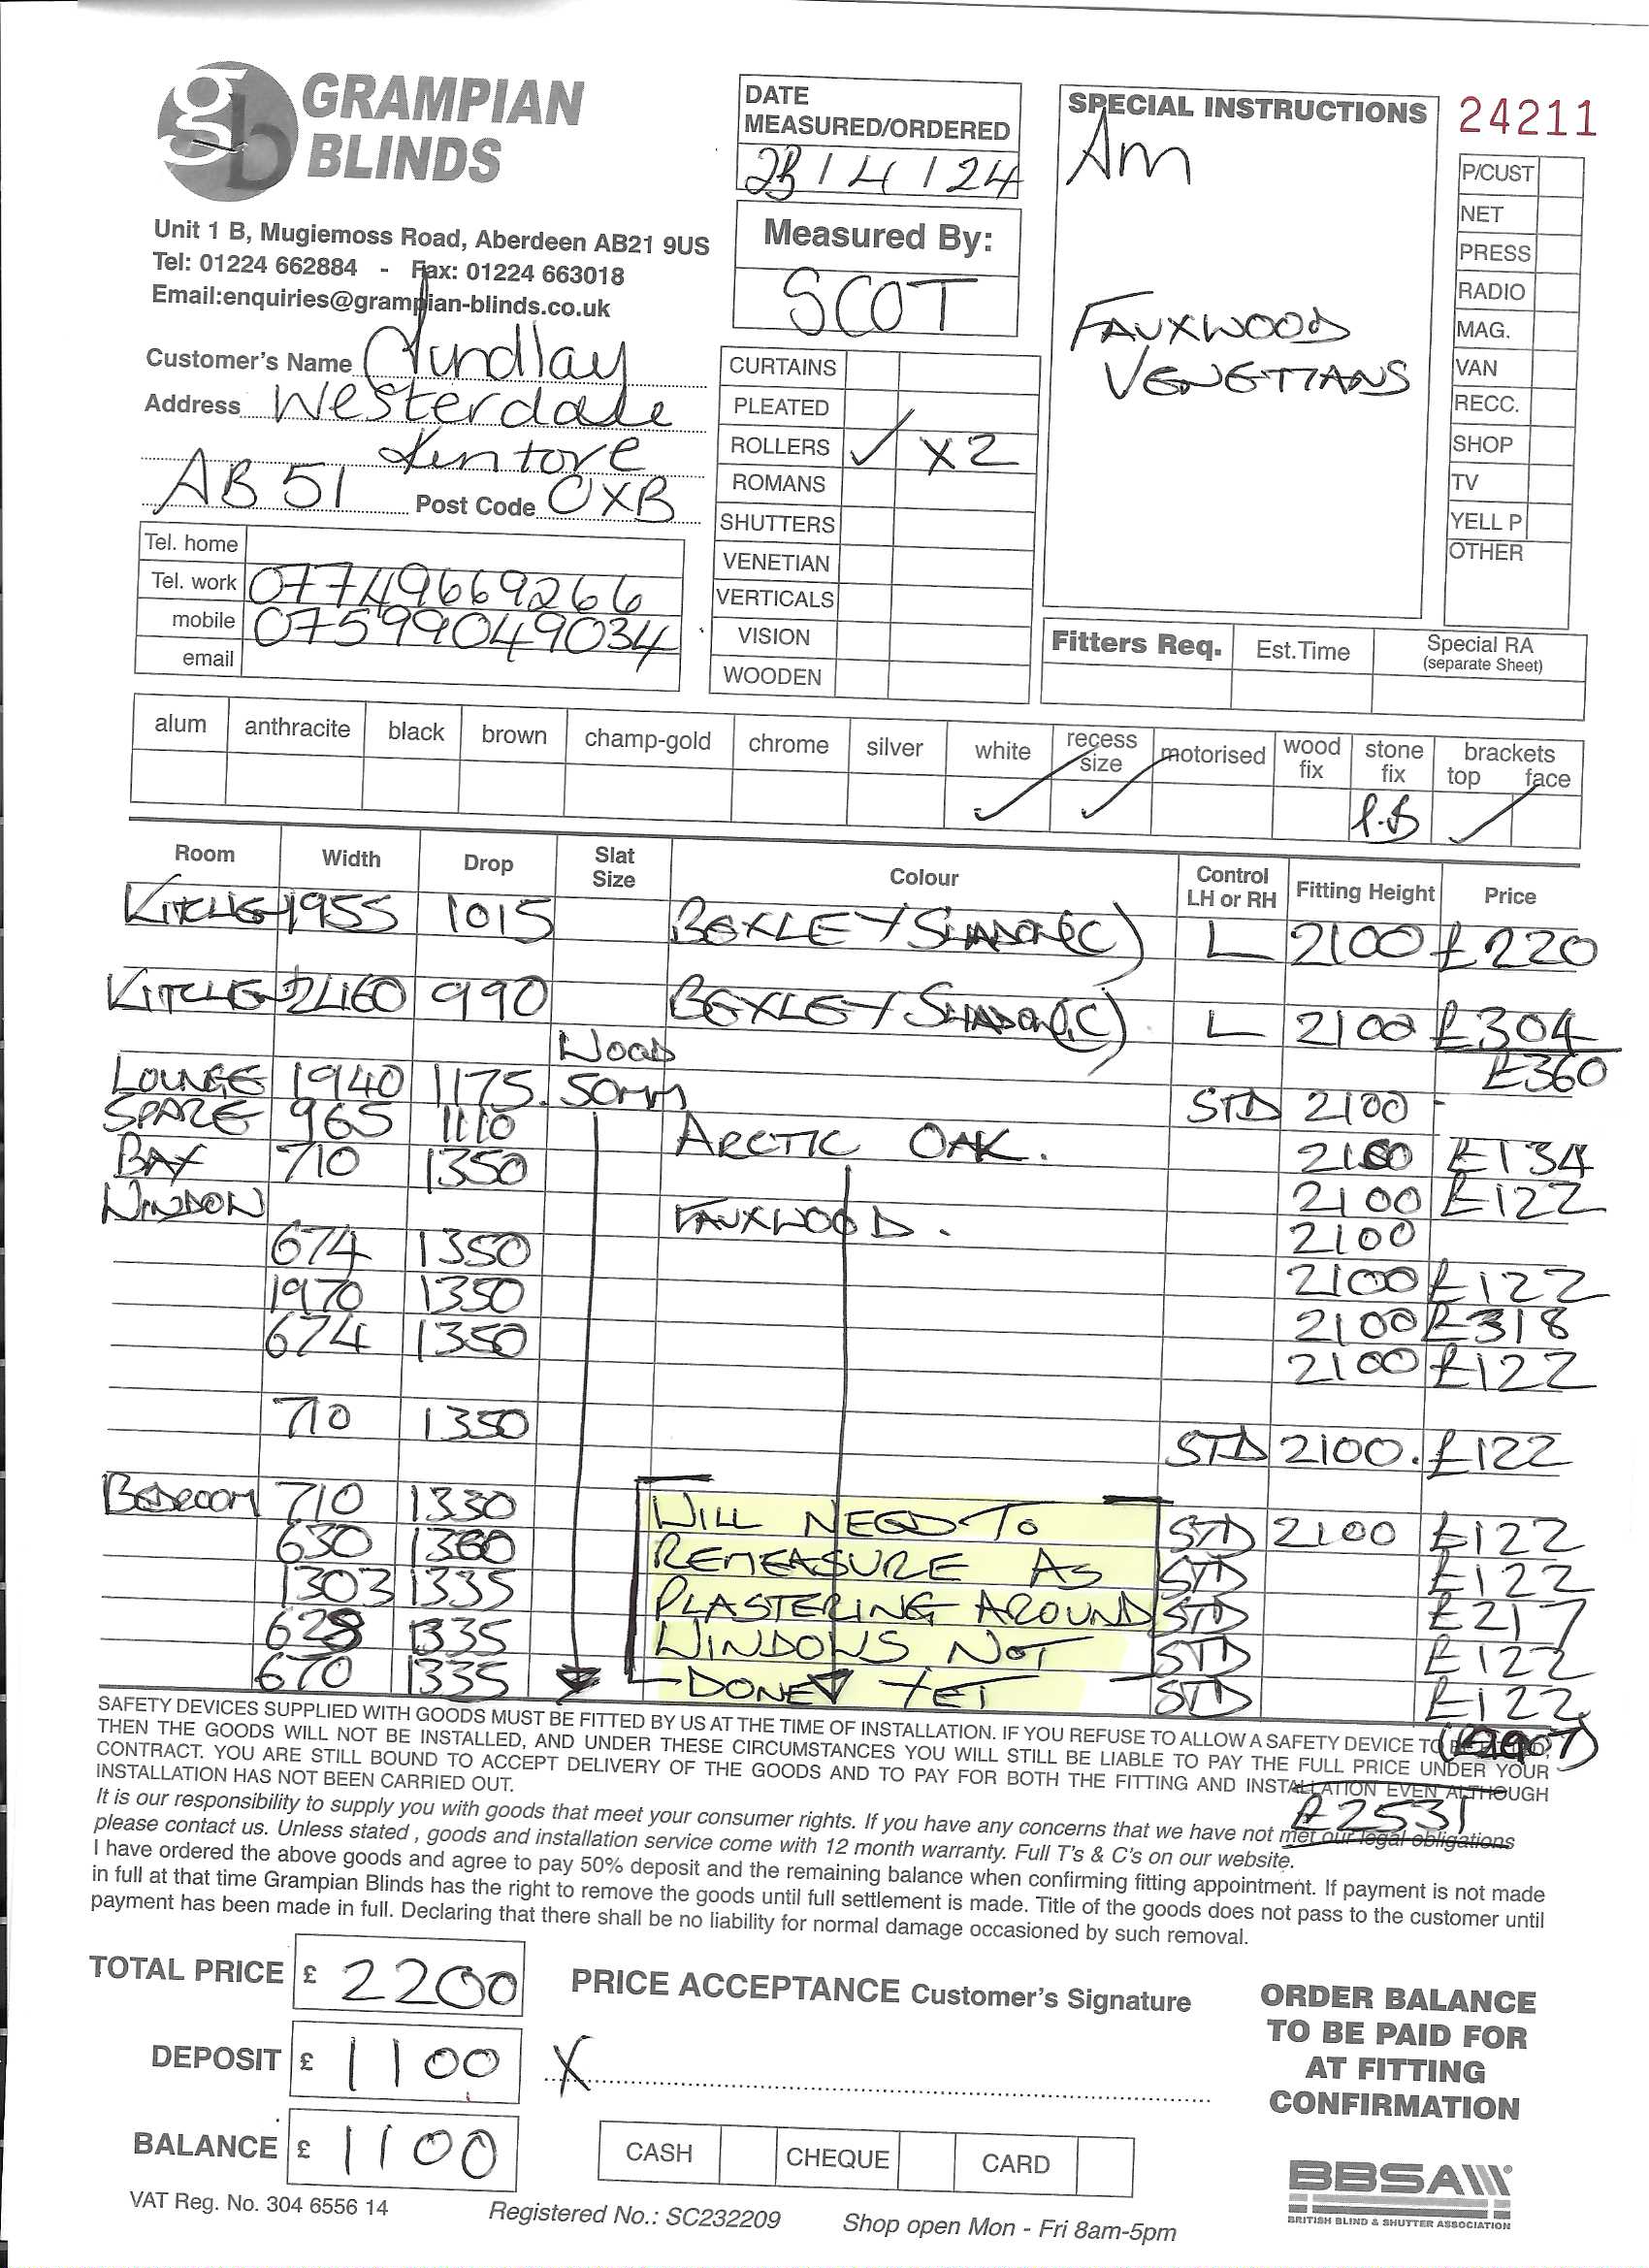 GRAMPIAN
BLINDS
Unit 1 B, Mugiemoss Road, Aberdeen AB21 9US
Tel: 01224 662884 - Fax: 01224 663018
Email:enquiries@grampian-blinds.co.uk
Customer's Name Lyndlay
Address Westerdale
Kintore
AB51 Post Code 0XB
Tel. home
Tel. work 07749669266
mobile 07599049034
email
DATE
MEASURED/ORDERED
23/4/24
Measured By:
SCOT
CURTAINS
PLEATED
ROLLERS ✓ X2
ROMANS
SHUTTERS
VENETIAN
VERTICALS
VISION
WOODEN
SPECIAL INSTRUCTIONS
Am
FAUXWOOD
VENETIANS
24211
P/CUST
NET
PRESS
RADIO
MAG.
VAN
RECC.
SHOP
TV
YELL P
OTHER
Fitters Req. Est.Time Special RA
(separate Sheet)
alum anthracite black brown champ-gold chrome silver white recess size motorised wood fix stone fix brackets top face
✓ ✓ P.B ✓
Room Width Drop Slat Size Colour Control LH or RH Fitting Height Price
KITCHEN 1955 1015 BEXLEY SHADOW (C) L 2100 £220
KITCHEN 2460 990 BEXLEY SHADOW (C) L 2100 £304
WOOD £360
LOUNGE 1940 1175. 50mm STD 2100
SPARE 965 1110 ARCTIC OAK. 2100 £134
BAY 710 1350 2100 £122
WINDOW FAUXWOOD. 2100
674 1350 2100 £122
1970 1350 2100 £318
674 1350 2100 £122
710 1350 STD 2100. £122
BEDROOM 710 1330 WILL NEED TO STD 2100 £122
630 1330 REMEASURE AS STD £122
1303 1335 PLASTERING AROUND STD £217
628 1335 WINDOWS NOT STD £122
670 1335 DONE YET STD £122
£2531
SAFETY DEVICES SUPPLIED WITH GOODS MUST BE FITTED BY US AT THE TIME OF INSTALLATION. IF YOU REFUSE TO ALLOW A SAFETY DEVICE TO BE FITTED,
THEN THE GOODS WILL NOT BE INSTALLED, AND UNDER THESE CIRCUMSTANCES YOU WILL STILL BE LIABLE TO PAY THE FULL PRICE UNDER YOUR
CONTRACT. YOU ARE STILL BOUND TO ACCEPT DELIVERY OF THE GOODS AND TO PAY FOR BOTH THE FITTING AND INSTALLATION EVEN ALTHOUGH
INSTALLATION HAS NOT BEEN CARRIED OUT.
It is our responsibility to supply you with goods that meet your consumer rights. If you have any concerns that we have not met our legal obligations
please contact us. Unless stated , goods and installation service come with 12 month warranty. Full T's & C's on our website.
I have ordered the above goods and agree to pay 50% deposit and the remaining balance when confirming fitting appointment. If payment is not made
in full at that time Grampian Blinds has the right to remove the goods until full settlement is made. Title of the goods does not pass to the customer until
payment has been made in full. Declaring that there shall be no liability for normal damage occasioned by such removal.
TOTAL PRICE £ 2200
DEPOSIT £ 1100
BALANCE £ 1100
PRICE ACCEPTANCE Customer's Signature
X
CASH CHEQUE CARD
ORDER BALANCE
TO BE PAID FOR
AT FITTING
CONFIRMATION
BBSA
BRITISH BLIND & SHUTTER ASSOCIATION
VAT Reg. No. 304 6556 14 Registered No.: SC232209 Shop open Mon - Fri 8am-5pm